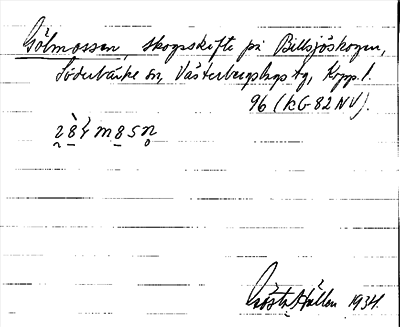 Gölmossen, skogsskifte på Billsjöskogen,
Söderbärke sn, Västerbergslags tg, Kopp. l.
96 (kG 82 NV).
Gösta Hallen 1934